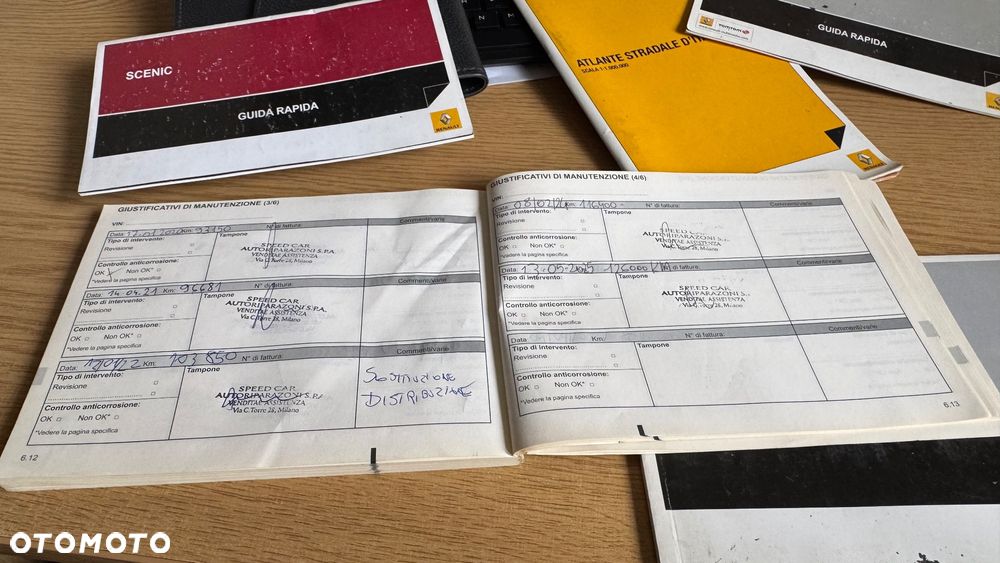 SCENIC
GUIDA RAPIDA
RENAULT
ATLANTE STRADALE D'IT
SCALA 1:1.900.000
tomtom
GUIDA RAPIDA
GIUSTIFICATIVI DI MANUTENZIONE (3/6)
VIN:
Data: Km: N° di fattura: Commenti/varie
Tipo di intervento: Tampone
Revisione
Controllo anticorrosione:
OK Non OK*
*Vedere la pagina specifica
SPEED CAR
AUTORIPARAZONI S.P.A.
VENDITAE ASSISTENZA
Via C. Torre 28, Milano
Data: 14.04.21 Km: 96681 N° di fattura: Commenti/varie
Tipo di intervento: Tampone
Revisione
Controllo anticorrosione:
OK Non OK*
*Vedere la pagina specifica
SPEED CAR
AUTORIPARAZONI S.P.A.
VENDITAE ASSISTENZA
Via C. Torre 28, Milano
Data: Km: 103850 N° di fattura: Commenti/varie
Tipo di intervento: Tampone
Revisione
Controllo anticorrosione:
OK Non OK*
*Vedere la pagina specifica
SPEED CAR
AUTORIPARAZONI S.P.A
VENDITAE ASSISTENZA
Via C. Torre 28, Milano
SOSTITUZIONE
DISTRIBUZIONE
6.12
GIUSTIFICATIVI DI MANUTENZIONE (4/6)
VIN:
Data: 08/02/24 Km: 116400 N° di fattura: Commenti/varie
Tipo di intervento: Tampone
Revisione
Controllo anticorrosione:
OK Non OK*
*Vedere la pagina specifica
SPEED CAR
AUTORIPARAZONI S.P.A.
VENDITAE ASSISTENZA
Via C. Torre 28, Milano
Data: 13-05-2025 126000 N° di fattura: Commenti/varie
Tipo di intervento: Tampone
Revisione
Controllo anticorrosione:
OK Non OK*
*Vedere la pagina specifica
SPEED CAR
AUTORIPARAZONI S.P.A.
VENDITAE ASSISTENZA
Via C. Torre 28, Milano
Data: Km: N° di fattura: Commenti/varie
Tipo di intervento: Tampone
Revisione
Controllo anticorrosione:
OK Non OK*
*Vedere la pagina specifica
6.13
OTOMOTO